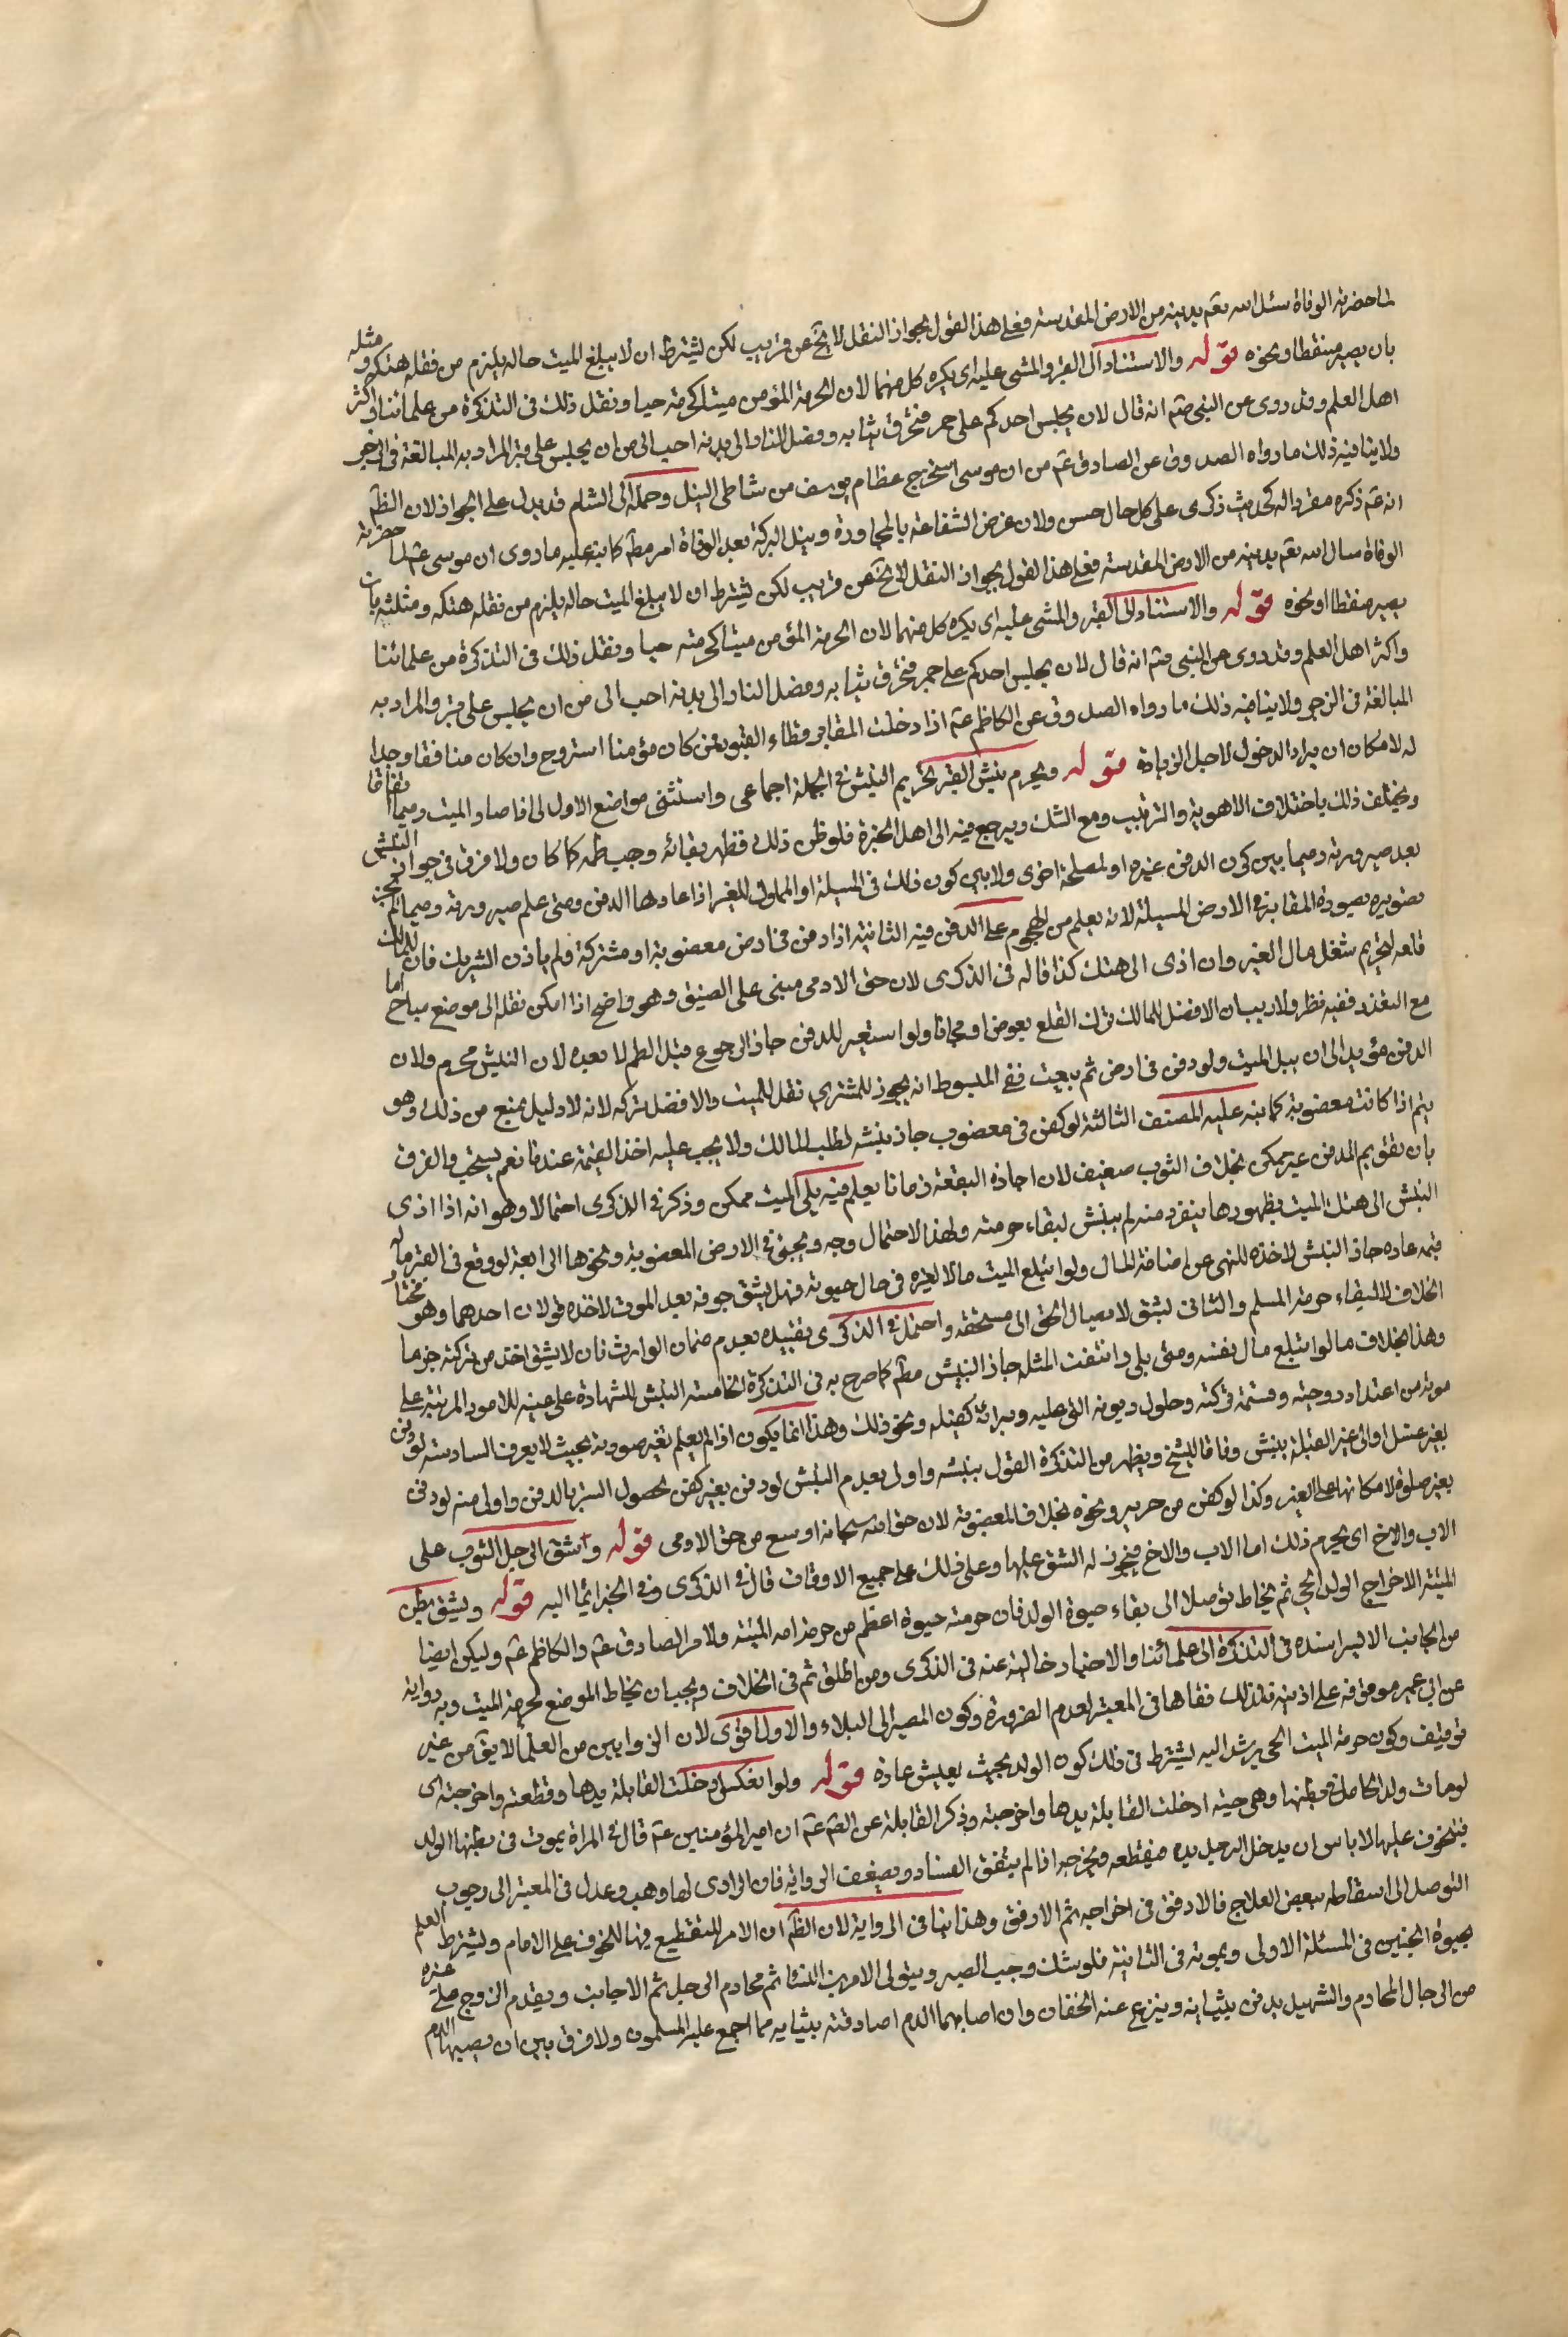 لما حضرته الوفاة سئل الله تعم يدينه من الارض المقدسة فعلى هذا القول بجواز النقل لا يخ عن قريب لكن يشترط ان لا يبلغ الميت حاله يلزم من نقله هتكه ومثله
بان يصير منقطا ونحوه قوله والاستناد الى القبر والمشى عليه اى يكره كل منهما لان لحرمة المؤمن ميتا كحرمته حيا ونقل ذلك فى التذكرة من علمائنا واكثر
اهل العلم وقد روى عن النبى صم انه قال لان يجلس احدكم على جمر فتحرق ثيابه وفصل النار الى بدنه احب الى من ان يجلس على قبر المراد به المبالغة فى الزجر
ولا ينافيه ذلك ما رواه الصدوق عن الصادق عم من ان موسى استخرج عظام يوسف من شاطى النيل وحمله الى الشام قد يدل على الجواز لان الظ
انه عم ذكره مقررا له كحديث ذكرى على كل حال حسن ولان غرض الشفاعة بالمجاورة ونيل البركة بعد الوفاة امر مط كما ينبه عليه ما روى ان موسى عم لما حضرته
الوفاة سال الله تعم يدينه من الارض المقدسة فعلى هذا القول بجواز النقل لا يخ عن قريب لكن يشترط ان لا يبلغ الميت حاله يلزم من نقله هتكه ومثلته بان
يصير منقطا او نحوه قوله والاستناد الى القبر والمشى عليه اى يكره كل منهما لان الحرمة المؤمن ميتا كحرمته حيا ونقل ذلك فى التذكرة من علمائنا
واكثر اهل العلم وقد روى عن النبى صم انه قال لان يجلس احدكم على جمر فتحرق ثيابه وفصل النار الى بدنه احب الى من ان يجلس على قبر والمراد به
المبالغة فى الزجر ولا ينافيه ذلك ما رواه الصدوق عن الكاظم عم اذا دخلت المقابر فطاء القبور فمن كان مؤمنا استروح وان كان منافقا وجدا
له لامكان ان يراد الدخول لاجل الزيادة قوله ويحرم نبش القبر تحريم النبش فى الجملة اجماعى واستثنى مواضع الاول اذا صار الميت رميما اتفاقا
ويختلف ذلك باختلاف الاهوية والترتيب ومع الشك ويرجع فيه الى اهل الخبرة فلو ظن ذلك فظهر بقائه وجب طمه كما كان ولا فرق فى جواز النبش
بعد صيرورته رميما بين كون الدفن غيره او لمصلحة اخرى ولا بين كون ذلك فى المسبلة او المملوك للغير اذا عارها الدفن ومتى علم صيرورته رميما لم يجز
تصويره بصورة المقابر فى الارض المسبلة لانه يعلم من الهجوم على الدفن فيه الثانية اذا دفن فى ارض مغصوبة او مشتركة ولم ياذن الشريك فان للمالك
قلعه لتحريم شغل مال الغير وان ادى الى هتك كذا قاله فى الذكرى لان حق الادمى مبنى على الضيق وهو واضح اذا امكن نقله الى موضع مباح اما
مع التعذر ففيه نظر ولا ريب ان الافضل للمالك ترك القلع بعوض او مجانا ولو استعير للدفن جاز الرجوع قبل الطم لا بعده لان النبش محرم ولان
الدفن مؤبد الى ان يبلى الميت ولو دفن فى ارض ثم بيعت ففى المبسوط انه يجوز للمشترى نقل الميت والافضل تركه لانه لا دليل يمنع من ذلك وهو
يتم اذا كانت مغصوبة كما ينبه عليه المصنف الثالثة لو كفن فى مغصوب جاز نبشه لطلب المالك ولا يجب عليه اخذ القيمة عندنا نعم يستحب والفرق
بان تقويم المدفن غير ممكن بخلاف الثوب ضعيف لان اجارة البقعة زمانا يعلم فيه بلى الميت ممكن وذكر فى الذكرى احتمالا وهو انه اذا ادى
النبش الى هتك الميت بظهورها ينفر منه لم ينبش لبقاء حرمته ولهذا الاحتمال وجه ويجئ فى الارض المغصوبة ونحوها الرابعة لو وقع فى القبر ماله
قيمة عادة جاز النبش لاخذه للنهى عن اضاعة المال ولو ابتلع الميت مالا لغيره فى حال حيوته فهل يشق جوفه بعد الموت لاخذه قولان احدهما وهو مختار
الخلاف لا لبقاء حرمة المسلم والثانى يشق لايصال الحق الى مستحقه واحتمل فى الذكرى تقييده بعدم ضمان الوارث فان لا يشق اخذ من تركته جزما
وهذا بخلاف ما لو ابتلع مال نفسه ومتى بلى وانتفت المثلة جاز النبش مط كما صرح به فى التذكرة الخامسة النبش للشهادة على عينه للامور المرتبة على
موته من اعتداد زوجته وقسمة تركته وحلول ديونه التى عليه وبرائة كفيله ونحو ذلك وهذا انما يكون اذا لم يعلم تغير صورته بحيث لا يعرف السادسة لو دفن
بغير غسل او الى غير القبلة ينبش وفاقا للشيخ ويظهر من التذكرة القول بنبشه واولى بعدم النبش لو دفن بغير كفن لحصول الستر بالدفن واولى منه لو دفن
بغير صلوة لامكانها على القبر وكذا لو كفن من حرير ونحوه بخلاف المغصوبة لان حق الله سبحانه اوسع من حق الادمى قوله وشق الرجل الثوب على
الاب والاخ اى يحرم ذلك اما الاب والاخ فيجوز له الشق عليها وعلى ذلك على جميع الاوقات قال فى الذكرى وفى الخبر ايما اليه قوله ويشق بطن
الميتة لاخراج الولد الحى ثم يخاط توصلا الى بقاء حيوة الولد فان حرمته حيوة اعظم من حرمة امه الميتة ولامر الصادق عم والكاظم عم وليكن ايضا
من الجانب الايسر اسنده فى التذكرة الى علمائنا والاخبار خالية عنه فى الذكرى ومن اطلق ثم فى الخلاف ويجب ان يخاط الموضع لحرمة الميت وبه رواية
عن ابى عمير موقوفة على اذينة فلذلك نفاها فى المعتبر لعدم الضرورة وكون المصير الى البلاء والاول اقوى لان الزوايين من العلما لا يق من غير
توقيف وكون حرمة الميت الحى يرشد اليه يشترط فى ذلك كون الولد بحيث يعيش عادة قوله ولو انعكس ادخلت القابلة يدها وقطعته واخرجته اى
لو مات ولد الحامل فى بطنها وهى حية ادخلت القابلة يدها واخرجته وذكر القابلة عن الصم عم ان امير المؤمنين عم قال فى المراة يموت فى بطنها الولد
فيتخوف عليها لا باس ان يدخل الرجل يده فيقطعه ويخرجه اذا لم يتفق النساء وبضعف الرواية فان الراوى لها وهب وعدل فى المعتبر الى وجوب
التوصل الى اسقاطه ببعض العلاج فالارفق فى اخراجه ثم الارفق وهذا ينافى الرواية لان الظ ان الامر للتقطيع فيها للخوف على الامام ويشترط العلم
بحيوة الجنين فى المسئلة الاولى وبموته فى الثانية فلو شك وجب الصبر ويتولى الامرين النساء ثم محارم الرجل ثم الاجانب ويقدم الزوج على غيره
من الرجال المحارم والشهيد يدفن بثيابه وينزع عنه الخفان وان اصابهما الدم اصا دفنه بثيابه مما اجمع عليه المسلمون ولا فرق بين ان يصيبها الدم